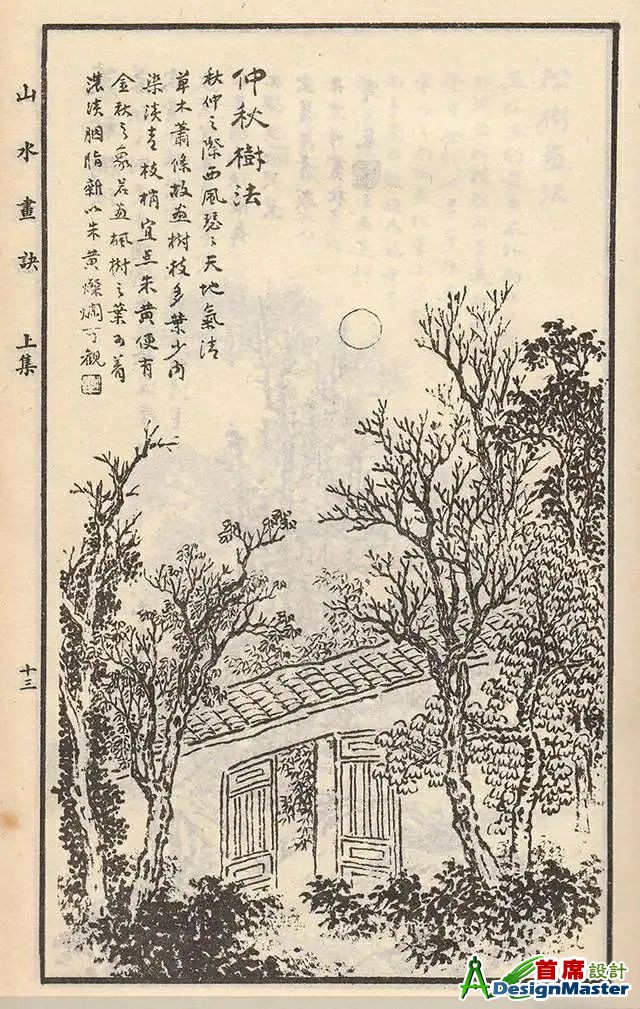 仲秋樹法
秋仲之際西風瑟々天地氣清
草木蕭條故画樹枝多葉少内
染淡青枝梢宜点朱黄便有
金秋之象若画楓樹之葉可着
濃淡胭脂雜以朱黄燦爛可観
山水畫訣 上集
十三
首席設計
ADesignMaster